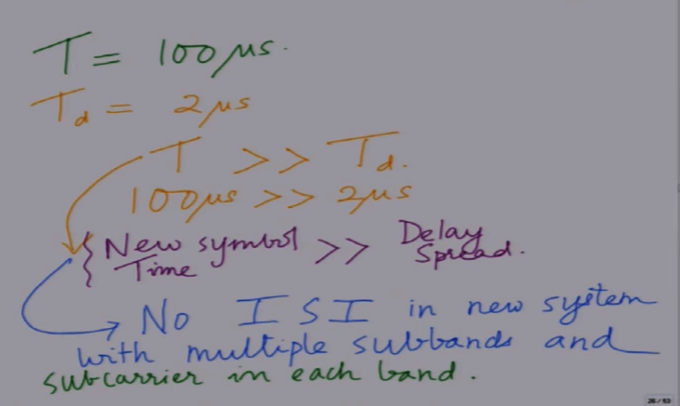 T = 100 μs.
T_d = 2 μs
T >> T_d.
100μs >> 2μs
{ New symbol Time >> Delay Spread.
No ISI in new system
with multiple subbands and
subcarrier in each band.
26 / 53